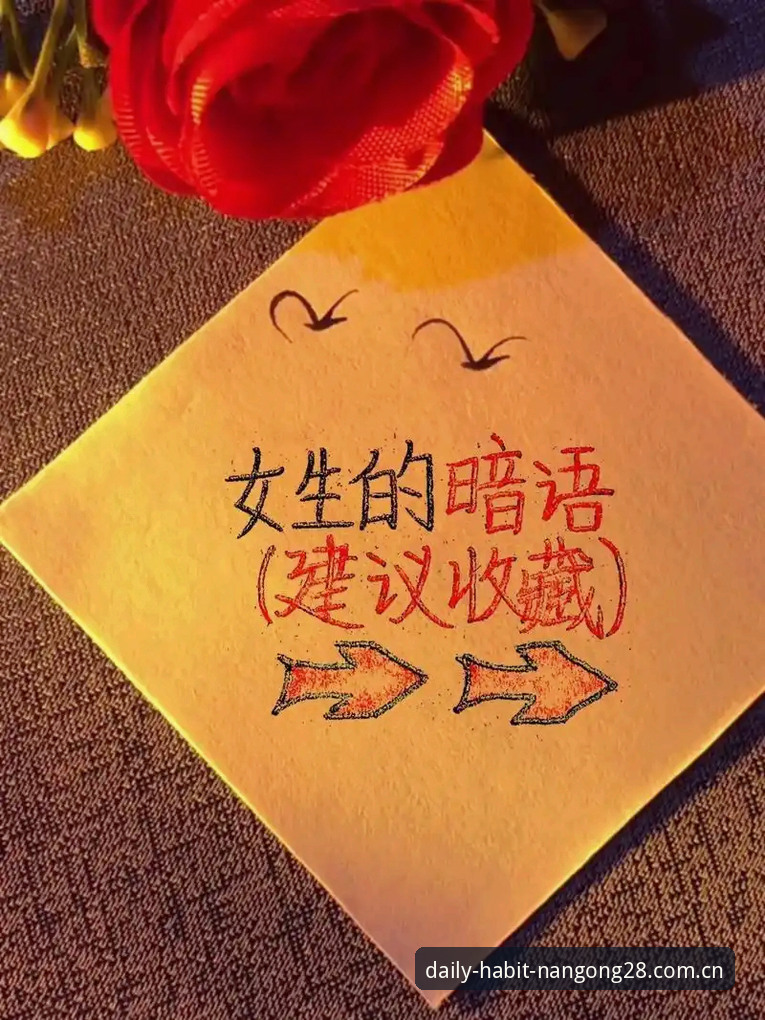 女生的暗语
(建议收藏)
daily-habit-nangong28.com.cn